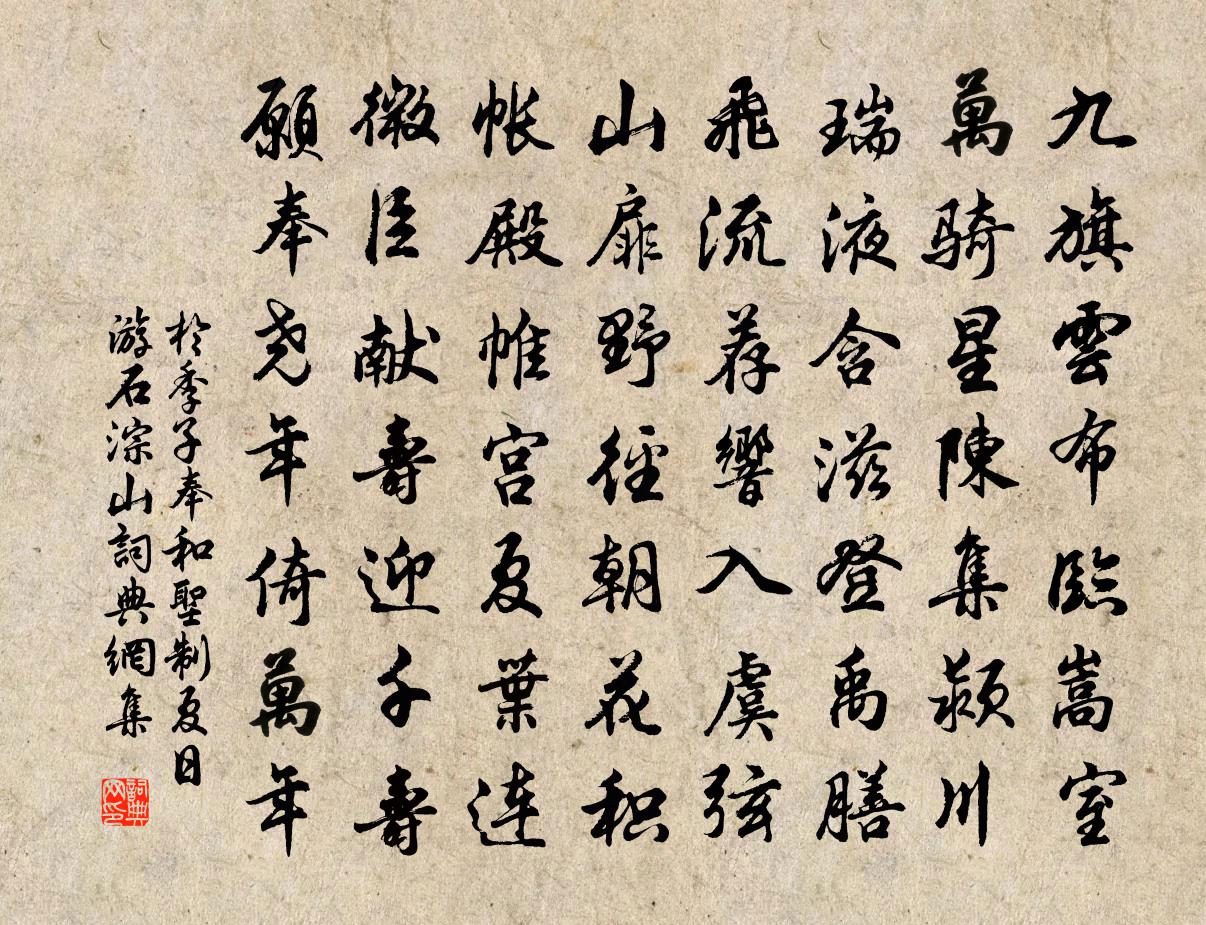 九旗雲布臨嵩室
萬騎星陳集潁川
瑞液含滋登禹膳
飛流荐響入虞弦
山扉野徑朝花积
帐殿帷宫夏葉连
微臣献壽迎千壽
願奉尧年倚萬年
於季子奉和聖制夏日
游石淙山詞典網集
詞典网印